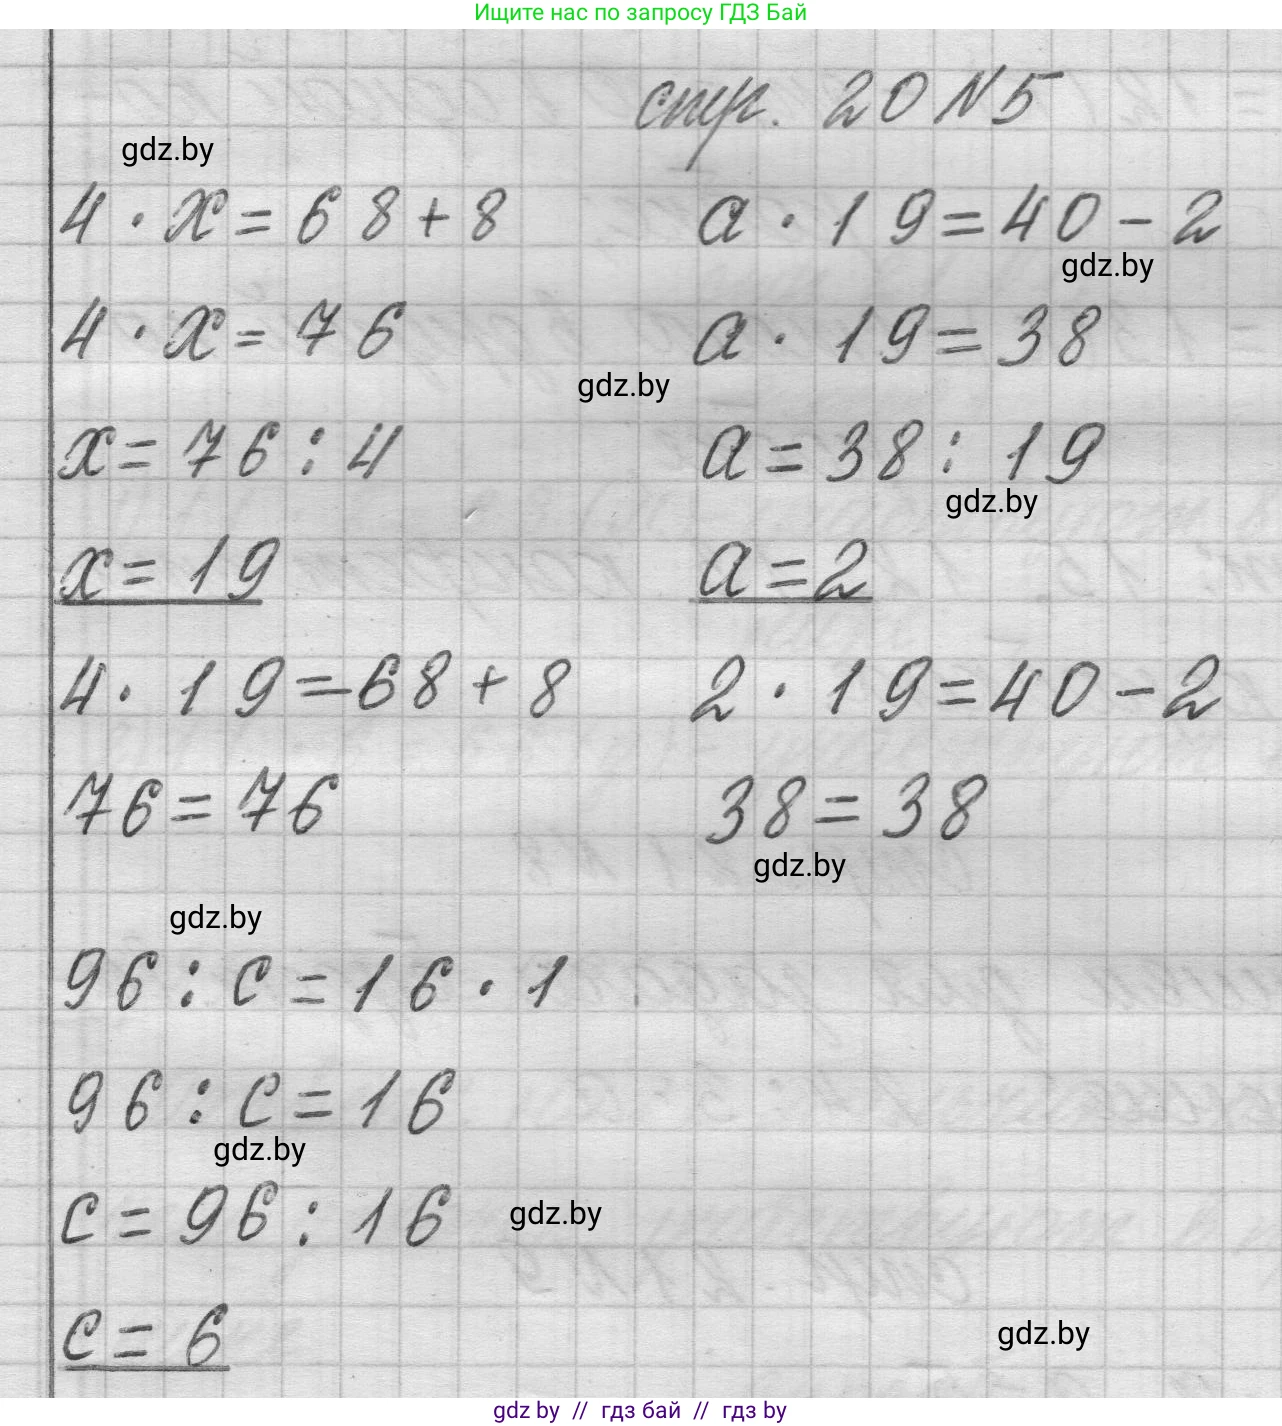 Ищите нас по запросу ГДЗ Бай
стр. 20 №5
gdz.by
4 · x = 68 + 8
a · 19 = 40 - 2
gdz.by
4 · x = 76
a · 19 = 38
gdz.by
x = 76 : 4
a = 38 : 19
gdz.by
x = 19
a = 2
4 · 19 = 68 + 8
2 · 19 = 40 - 2
76 = 76
38 = 38
gdz.by
gdz.by
96 : c = 16 · 1
96 : c = 16
gdz.by
c = 96 : 16
gdz.by
c = 6
gdz.by
gdz by // гдз бай // гдз by